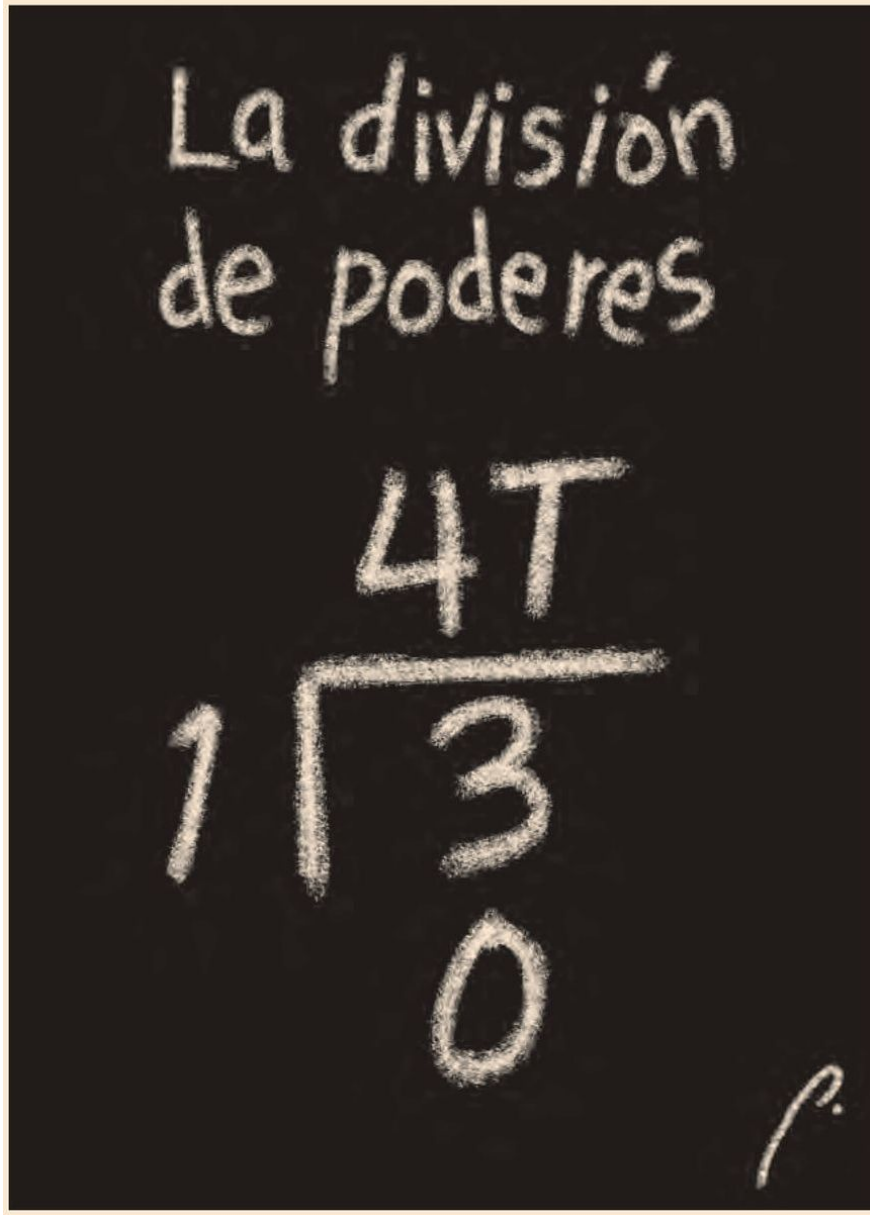 La división
de poderes
4T
1 3
0